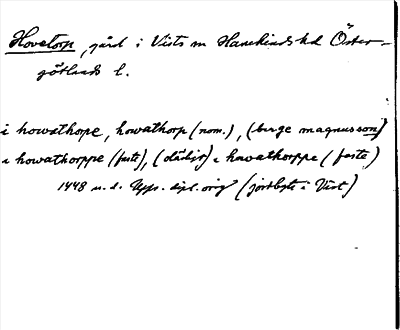 Hovetorp, gård i Vists sn Hanekinds hd Öster-
götlands l.
i howathorpe, howathorp (nom.), (birge magnusson)
i howathorppe (faste), (dädis) i havathorppe (faste)
1448 u. d. Upps. dipl. orig (jordbyte i Vist)